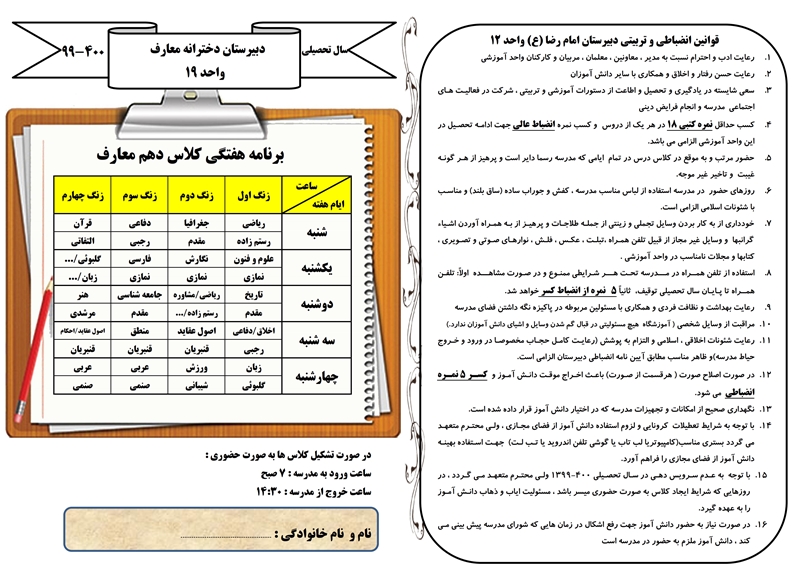 قوانین انضباطی و تربیتی دبیرستان امام رضا (ع) واحد ۱۲
۱. رعایت ادب و احترام نسبت به مدیر ، معاونین ، معلمان ، مربیان و کارکنان واحد آموزشی
۲. رعایت حسن رفتار و اخلاق و همکاری با سایر دانش آموزان
۳. سعی شایسته در یادگیری و تحصیل و اطاعت از دستورات آموزشی و تربیتی ، شرکت در فعالیت های
اجتماعی مدرسه و انجام فرایض دینی
۴. کسب حداقل نمره کتبی ۱۸ در هر یک از دروس و کسب نمره انضباط عالی جهت ادامه تحصیل در
این واحد آموزشی الزامی می باشد.
۵. حضور مرتب و به موقع در کلاس درس در تمام ایامی که مدرسه رسما دایر است و پرهیز از هر گونه
غیبت و تاخیر غیر موجه.
۶. روزهای حضور در مدرسه استفاده از لباس مناسب مدرسه ، کفش و جوراب ساده (ساق بلند) و مناسب
با شئونات اسلامی الزامی است.
۷. خودداری از به کار بردن وسایل تجملی و زینتی از جمله طلاجات و پرهیز از به همراه آوردن اشیاء
گرانبها و وسایل غیر مجاز از قبیل تلفن همراه ،تبلت ، عکس ، فلش ، نوارهای صوتی و تصویری ،
کتابها و مجلات نامناسب در واحد آموزشی .
۸. استفاده از تلفن همراه در مدرسه تحت هر شرایطی ممنوع و در صورت مشاهده اولاً: تلفن
همراه تا پایان سال تحصیلی توقیف، ثانیاً ۵ نمره از انضباط کسر خواهد شد.
۹. رعایت بهداشت و نظافت فردی و همکاری با مسئولین مربوطه در پاکیزه نگه داشتن فضای مدرسه
۱۰. مراقبت از وسایل شخصی ( آموزشگاه هیچ مسئولیتی در قبال گم شدن وسایل و اشیای دانش آموزان ندارد.)
۱۱. رعایت شئونات اخلاقی ، اسلامی و التزام به پوشش (رعایت کامل حجاب مخصوصا در ورود و خروج
حیاط مدرسه)و ظاهر مناسب مطابق آیین نامه انضباطی دبیرستان الزامی است.
۱۲. در صورت اصلاح صورت ( هرقسمت از صورت) باعث اخراج موقت دانش آموز و کسر ۵ نمره
انضباطی می شود.
۱۳. نگهداری صحیح از امکانات و تجهیزات مدرسه که در اختیار دانش آموز قرار داده شده است.
۱۴. با توجه به شرایط تعطیلات کرونایی و لزوم استفاده دانش آموز از فضای مجازی ، ولی محترم متعهد
می گردد بستری مناسب(کامپیوتریا لپ تاب یا گوشی تلفن اندروید یا تب لت) جهت استفاده بهینه
دانش آموز از فضای مجازی را فراهم آورد.
۱۵. با توجه به عدم سرویس دهی در سال تحصیلی ۴۰۰-۱۳۹۹ ولی محترم متعهد می گردد ، در
روزهایی که شرایط ایجاد کلاس به صورت حضوری میسر باشد ، مسئولیت ایاب و ذهاب دانش آموز
را به عهده گیرد.
۱۶. در صورت نیاز به حضور دانش آموز جهت رفع اشکال در زمان هایی که شورای مدرسه پیش بینی می
کند ، دانش آموز ملزم به حضور در مدرسه است
سال تحصیلی
دبیرستان دخترانه معارف
واحد ۱۹
۹۹-۴۰۰
برنامه هفتگی کلاس دهم معارف
ساعت
ایام هفته
زنگ اول زنگ دوم زنگ سوم زنگ چهارم
شنبه
ریاضی جغرافیا دفاعی قرآن
رستم زاده مقدم رجبی التفاتی
یکشنبه
علوم و فنون نگارش فارسی گلبوئی/...
نمازی نمازی نمازی زبان/...
دوشنبه
تاریخ ریاضی/مشاوره جامعه شناسی هنر
مقدم رستم زاده/... مقدم مرشدی
سه شنبه
اخلاق/دفاعی اصول عقاید منطق اصول عقاید/احکام
رجبی قنبریان قنبریان قنبریان
چهارشنبه
زبان ورزش عربی عربی
گلبوئی شیبانی صنمی صنمی
در صورت تشکیل کلاس ها به صورت حضوری :
ساعت ورود به مدرسه : ۷ صبح
ساعت خروج از مدرسه : ۱۴:۳۰
نام و نام خانوادگی : ........................................